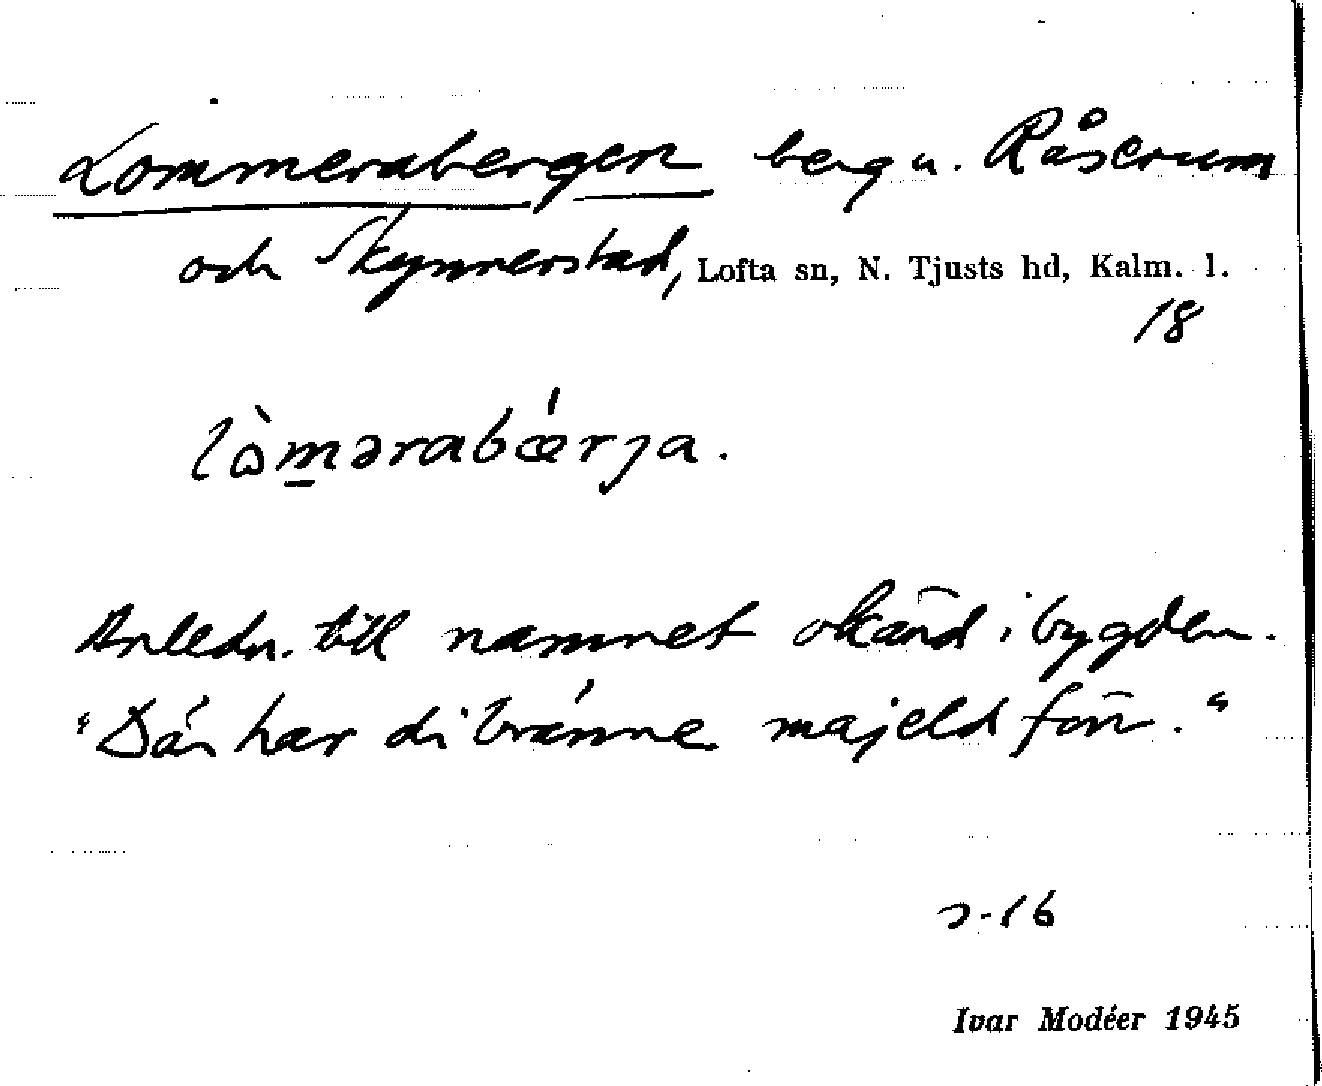 Lommerabergen berg u. Råserum
och Skynnerstad, Lofta sn, N. Tjusts hd, Kalm. l.
18
lòmərabǽrja.
Anledn. till namnet okänd i bygden.
"Där har di bränne majeld förr."
2-16
Ivar Modéer 1945